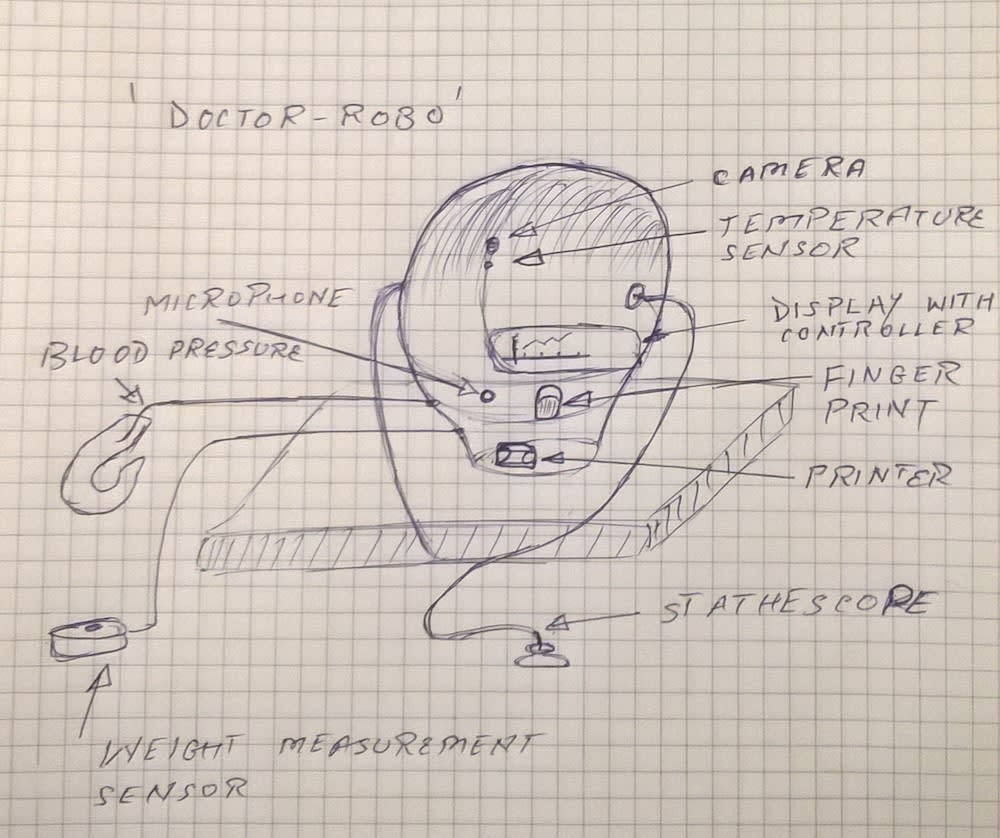 'DOCTOR-ROBO'
CAMERA
TEMPERATURE
SENSOR
MICROPHONE
DISPLAY WITH
CONTROLLER
BLOOD PRESSURE
FINGER
PRINT
PRINTER
STATHESCOPE
WEIGHT MEASUREMENT
SENSOR